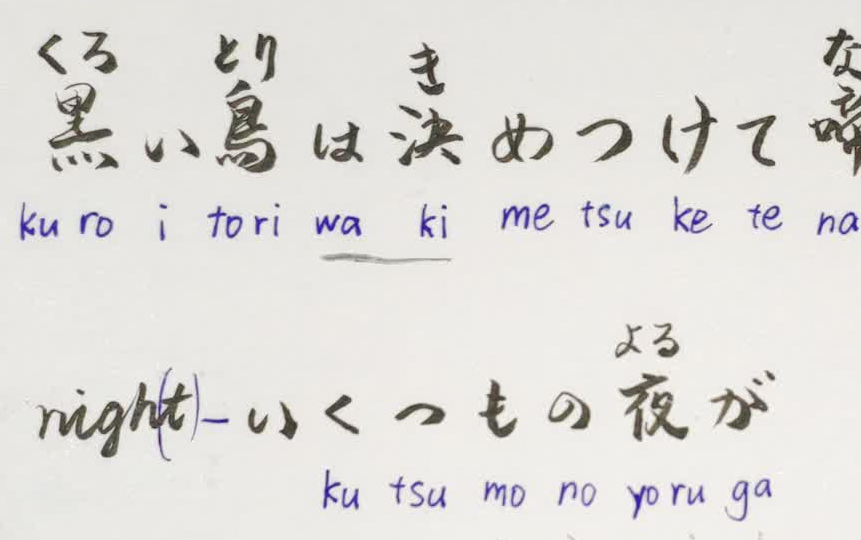 くろ とり き な
黒い鳥は決めつけて啼
ku ro i to ri wa ki me tsu ke te na
よる
night)-いくつもの夜が
ku tsu mo no yo ru ga